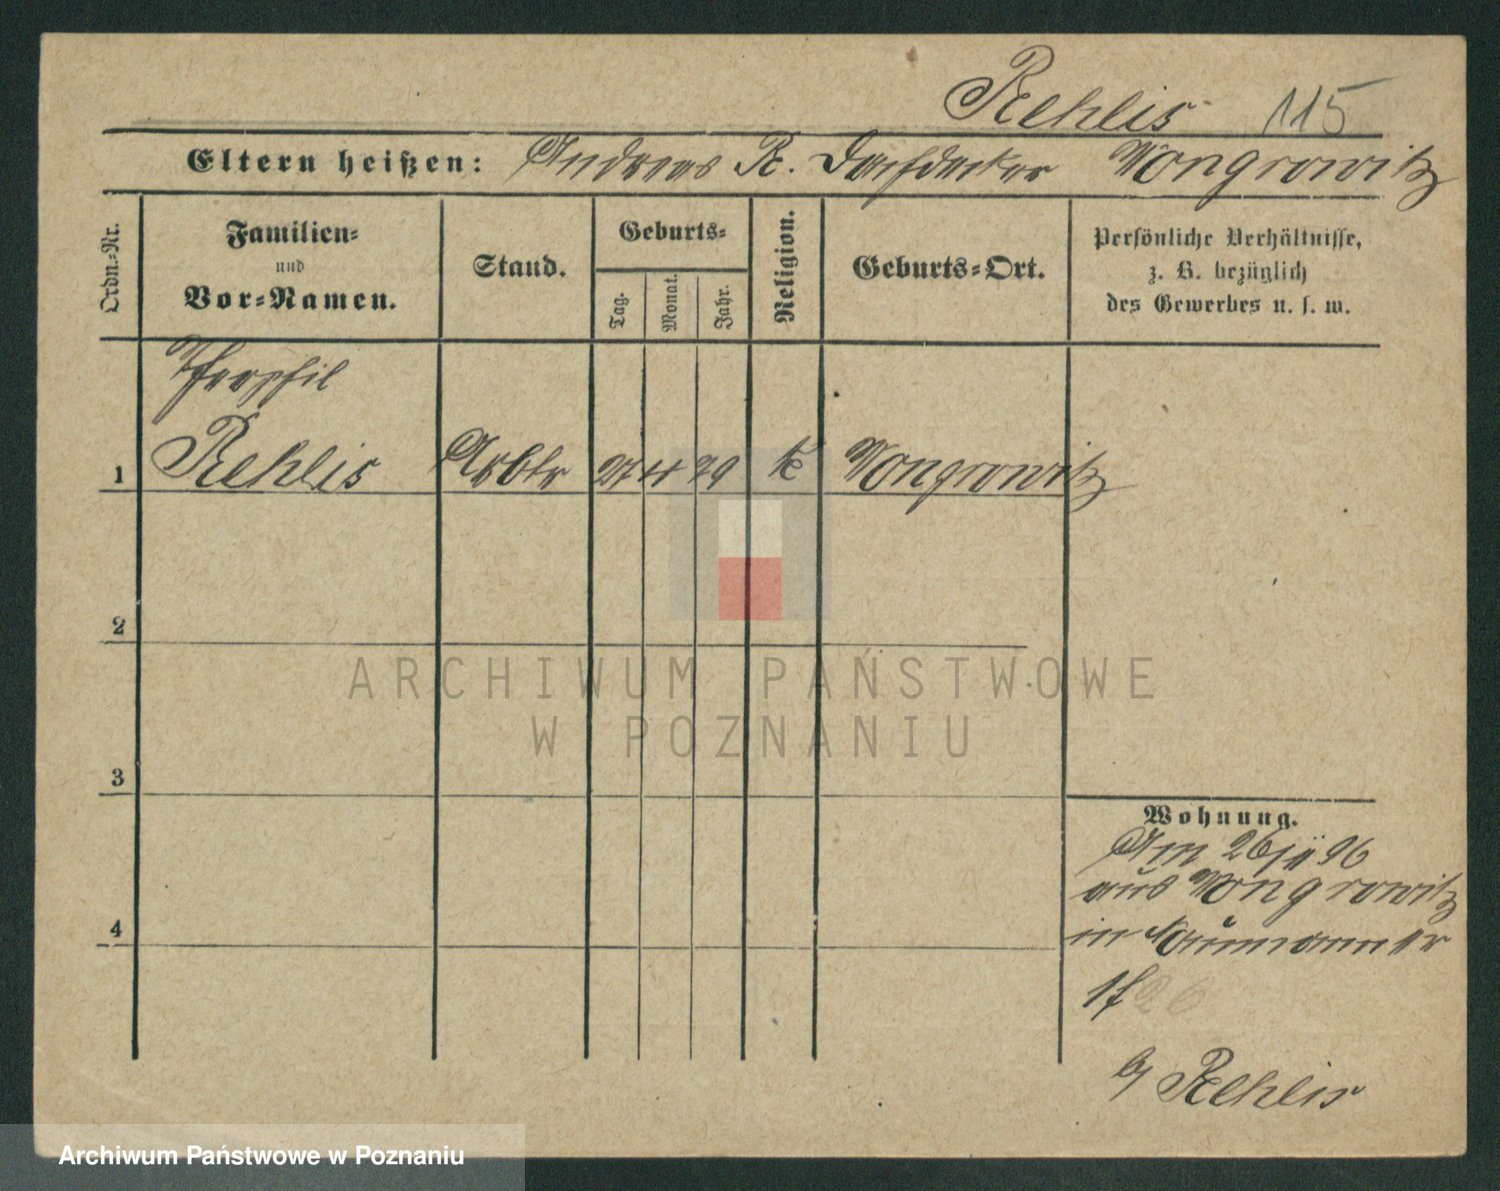 Rehlis 115
Eltern heißen: Andreas R. Dachdecker Wongrowitz
Ordn.-Nr.
Familien-
und
Vor-Namen.
Stand.
Geburts-
Tag.
Monat.
Jahr.
Religion.
Geburts-Ort.
Persönliche Verhältnisse,
z. B. bezüglich
des Gewerbes u. s. w.
Theophil
1 Rehlis Arbtr 27 4 79 k Wongrowitz
2
3
4
Wohnung.
Am 26/ 96
aus Wongrowitz
in
17
b/ Rehlis
ARCHIWUM PAŃSTWOWE
W POZNANIU
Archiwum Państwowe w Poznaniu